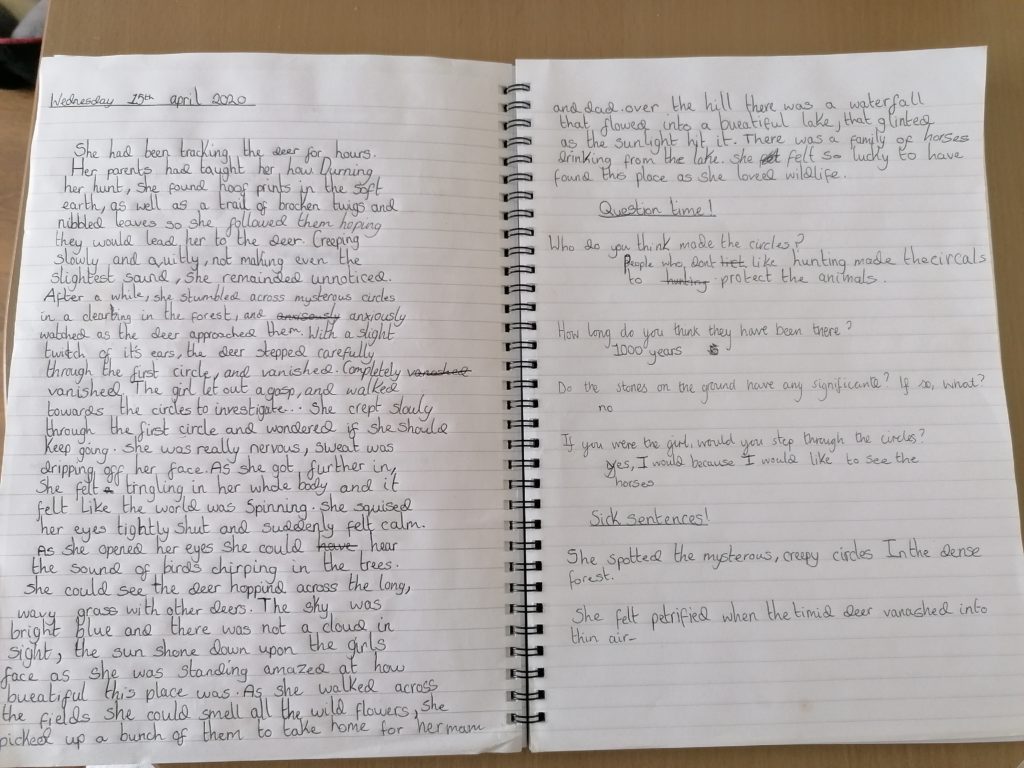 Wednesday 15th april 2020
She had been tracking the deer for hours.
Her parents had taught her how. Durning
her hunt, she found hoof prints in the soft
earth, as well as a trail of brocken twigs and
nibbled leaves so she followed them hoping
they would lead her to the deer. Creeping
slowly and quitly, not making even the
slightest sound, she remainded unnoticed.
After a while, she stumbled across mysterous circles
in a clearbing in the forest, and anxiously
watched as the deer approached them. With a slight
twitch of it's ears, the deer stepped carefully
through the first circle, and vanished. Completely vanashed
vanished. The girl let out a gasp, and walked
towards the circles to investigate.. She crept slowly
through the first circle and wondered if she should
Keep going. She was really nervous, sweat was
dripping off her face. As she got further in,
She felt a tringling in her whole body and it
felt like the world was spinning. she squised
her eyes tightly shut and suddenly felt calm.
As she opened her eyes she could have hear
the sound of birds chirping in the trees.
She could see the deer hoppind across the long,
wavy grass with other deers. The sky was
bright blue and there was not a cloud in
sight, the sun shone down upon the girls
face as she was standing amazed at how
bueatiful this place was. As she walked across
the fields she could smell all the wild flowers, she
picked up a bunch of them to take home for her mam
and dad. over the hill there was a waterfall
that flowed into a bueatiful lake, that glinted
as the sunlight hit it. There was a family of horses
drinking from the lake. she felt so lucky to have
found this place as she loved wildlife.
Question time!
Who do you think made the circles?
People who, dont like hunting made the circals
to hunting protect the animals.
How long do you think they have been there?
1000 years
Do the stones on the ground have any significante? If so, what?
no
If you were the girl, would you step through the circles?
yes, I would because I would like to see the
horses
Sick sentences!
She spotted the mysterous, creepy circles In the dense
forest.
She felt petrified when the timid deer vanashed into
thin air-